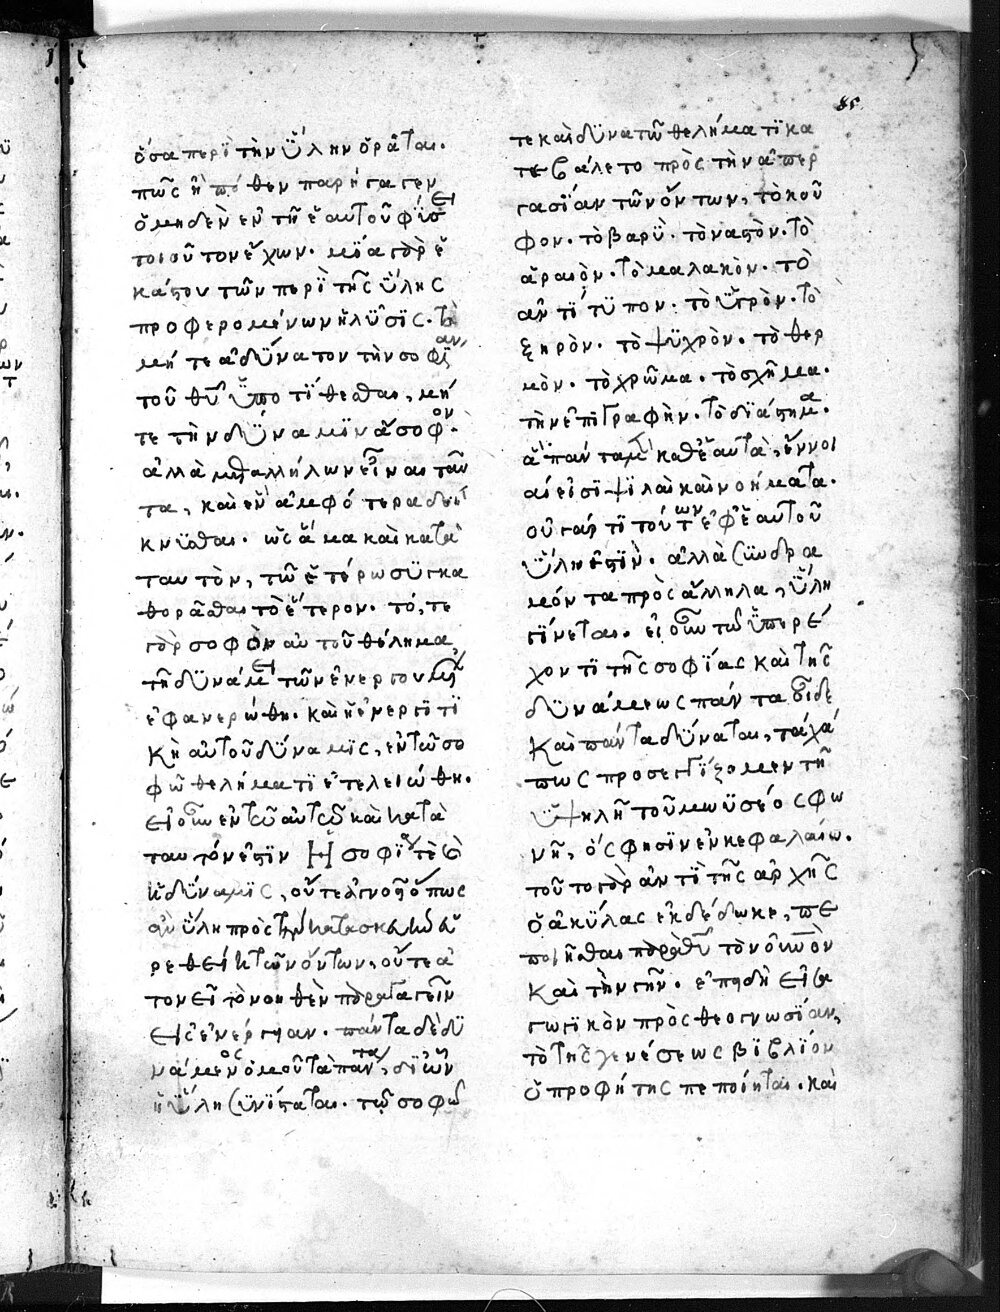 85
ὅσα περὶ τὴν ὕλην ὁρᾶται.
πῶς ἢ πόθεν παρήγαγεν
ὁ μηδὲν ἐν τῇ ἑαυτοῦ φύσει
τοιοῦτον ἔχων. μία γὰρ ἑ
κάστου τῶν περὶ τῆς ὕλης
προφερομένων ἡ λύσις. τὸ
μήτε ἀδύνατον τὴν σοφίαν
τοῦ θυ ὑποτίθεσθαι, μή
τε τὴν δύναμιν ἄσοφον.
ἀλλὰ μετ ἀλλήλων εἶναι ταῦ
τα, καὶ ἓν ἀμφότερα δεί
κνυσθαι. ὡς ἅμα καὶ κατὰ
ταυτὸν, τῷ ἑτέρω συγκα
θορᾶσθαι τὸ ἕτερον. τό, τε
γὰρ σοφὸν αὐτοῦ θέλημα,
τῇ δυνάμει τῶν ἐνεργουμένων
ἐφανερώθη. καὶ ἡ ἐνεργητι
κὴ αὐτοῦ δύναμις, ἐν τῷ σο
φῷ θελήματι ἐτελειώθη.
εἰ οὖν ἐν τῷ αὐτῷ καὶ κατὰ
ταυτόν ἐστιν ἡ σοφία τὲ καὶ
ἡ δύναμις, οὔτε ἀγνοεῖ ὅπως
ἂν ὕλη πρὸς τὴν κατασκευὴν εὑ
ρεθείη τῶν ὄντων, οὔτε ἀ
τονεῖ τὸ νοηθὲν παραγαγεῖν
εἰς ἐνέργειαν. πάντα δὲ δυ
νάμενος ὁμοῦ τὰ πάντα, δι ὧν
ἡ ὕλη συνίσταται. τῷ σοφῷ
τε καὶ δυνατῷ θελήματι κα
τεβάλετο πρὸς τὴν ἀπερ
γασίαν τῶν ὄντων, τὸ κοῦ
φον. τὸ βαρὺ. τὸ ναστὸν. τὸ
ἀραιὸν. τὸ μαλακὸν. τὸ
ἀντίτυπον. τὸ ὑγρὸν. τὸ
ξηρὸν. τὸ ψυχρὸν. τὸ θερ
μὸν. τὸ χρῶμα. τὸ σχῆμα.
τὴν ἐπιγραφὴν. τὸ διάστημα.
ἃ πάντα μὲν καθ ἑαυτὰ, ἔννοι
αί εἰσι ψιλαὶ καὶ νοήματα.
οὐ γάρ τι τούτων ἐφ ἑαυτοῦ
ὕλη ἐστὶν. ἀλλὰ συνδρα
μόντα πρὸς ἄλληλα, ὕλη
γίνεται. εἰ οὖν τῷ ὑπερέ
χοντι τῆς σοφίας καὶ τῆς
δυνάμεως πάντα οἶδε
καὶ πάντα δύναται, τάχά
πως προσεγγίζομεν τῇ
ὑψηλῇ τοῦ μωυσέος φω
νῇ, ὅς φησιν ἐν κεφαλαίω.
τοῦτο γὰρ ἀντὶ τῆς ἀρχῆς
ὁ ἀκύλας ἐκδέδωκε, πε
ποιῆσθαι παρὰ θυ τὸν οὐνὸν
καὶ τὴν γῆν. ἐπειδὴ εἰσα
γωγικὸν πρὸς θεογνωσίαν,
τὸ τῆς γενέσεως βιβλίον
ὁ προφήτης πεποίηται. καὶ